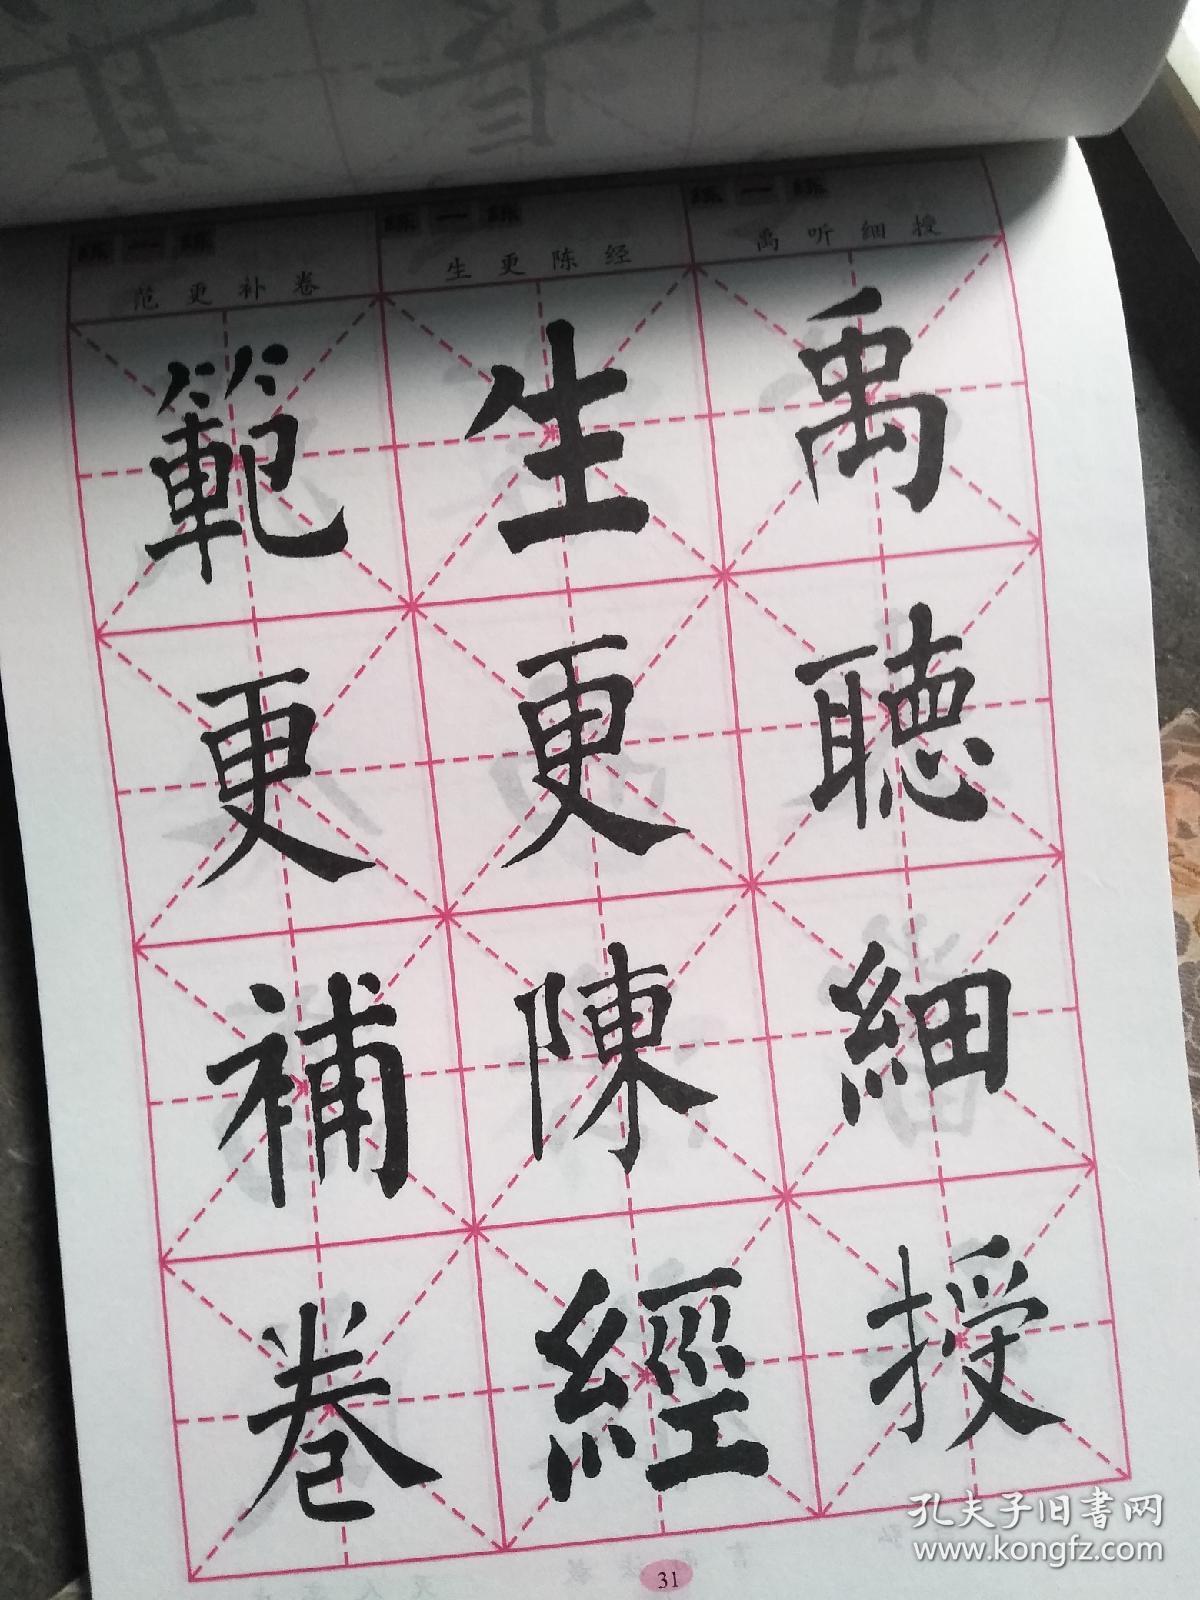 练一练
禹听细授
禹
聽
細
授
练一练
生更陈经
生
更
陳
經
练一练
范更补卷
範
更
補
卷
31
孔夫子旧书网
www.kongfz.com